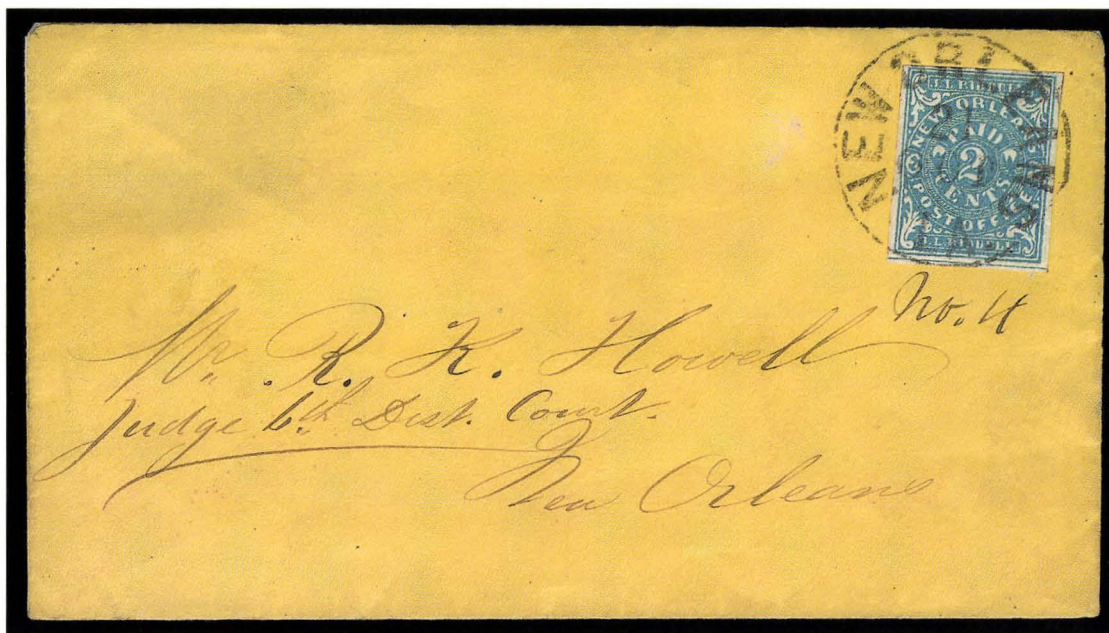 NEW ORLEANS
LA
21
J.L. RIDDELL
NEW ORLEANS
PAID
2
CENTS
POST OFFICE
J.L. RIDDELL
No. 4
Mr. R. K. Howell
Judge 6th Dist. Court.
New Orleans